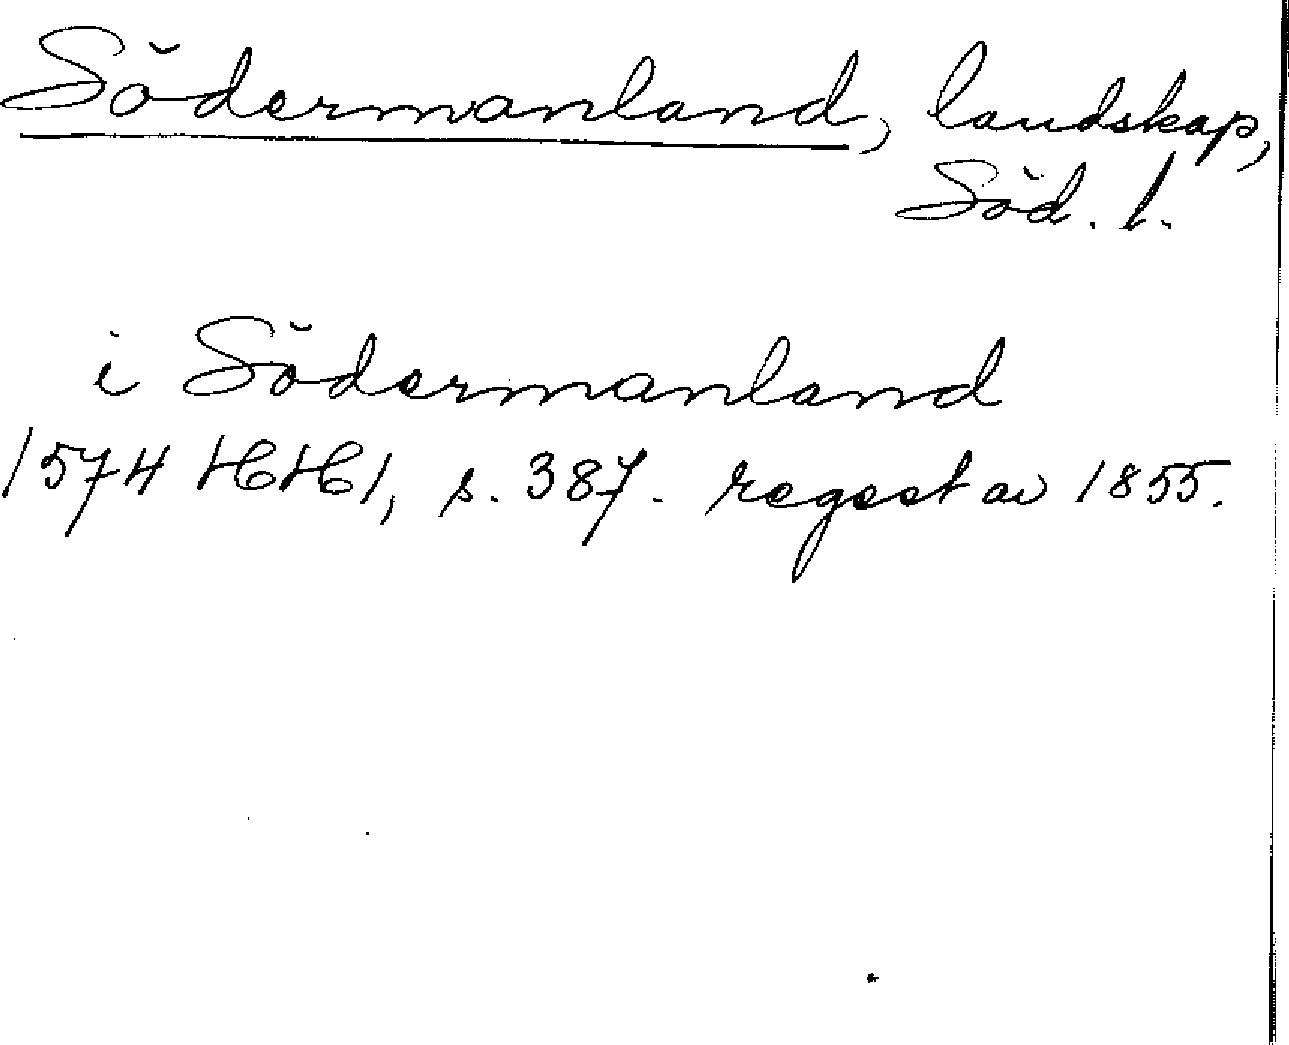 Södermanland, landskap,
Söd. l.
i Södermanland
1574 HH1, s. 387. regest av 1855.